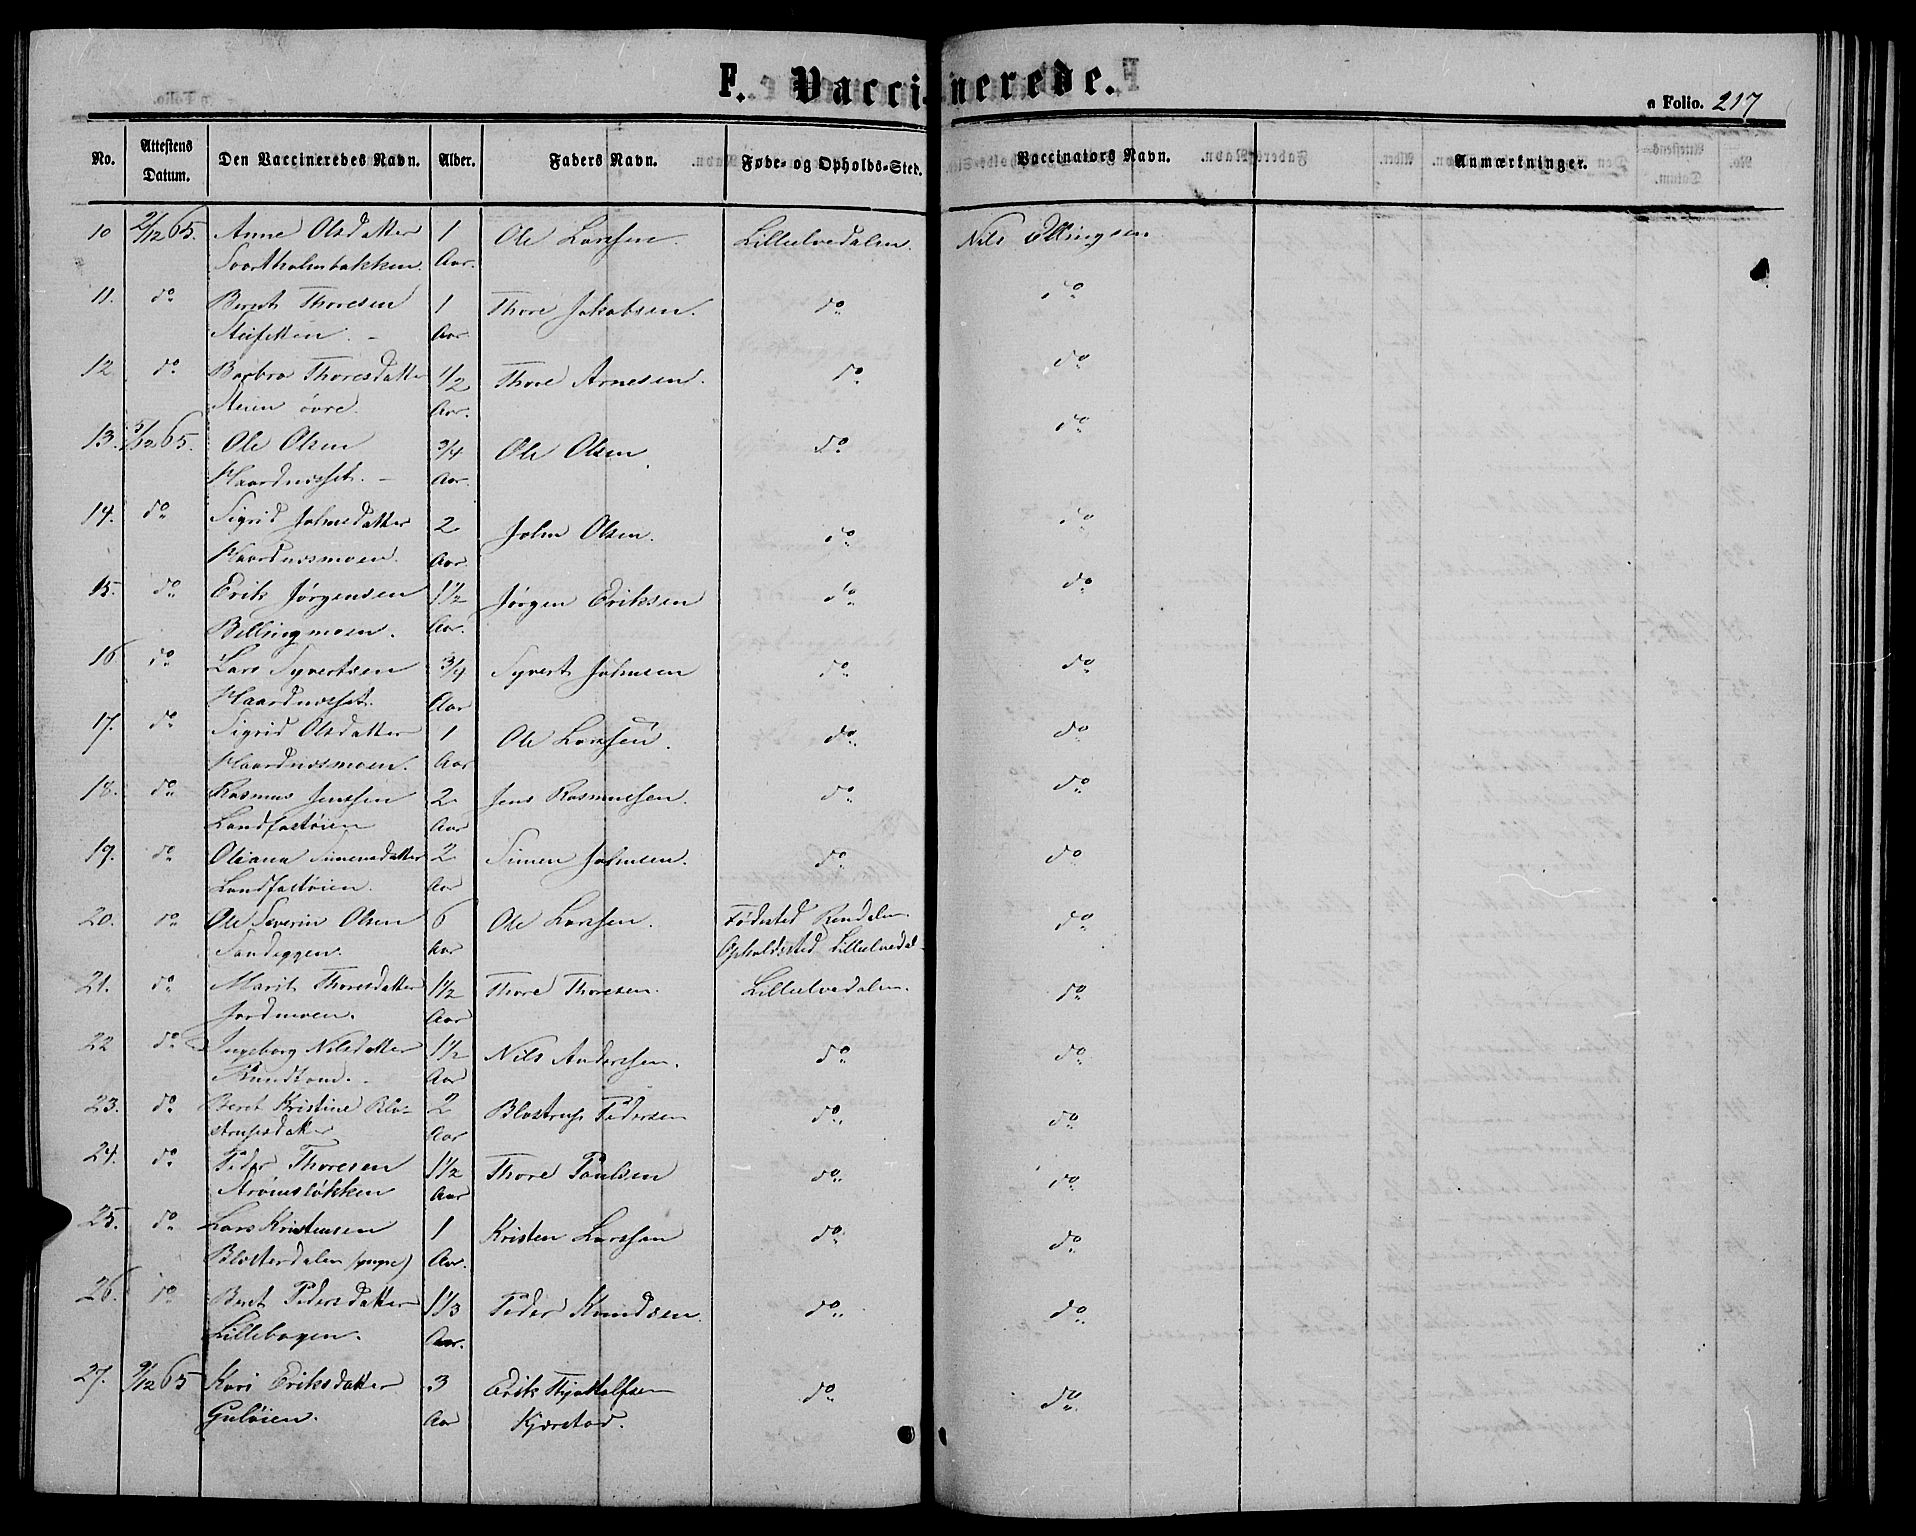 F. Vaccinerede.
a Folio. 217
No. Attestens Datum. Den Vaccineredes Navn. Alder. Faders Navn. Føde- og Opholds-Sted. Vaccinators Navn. Anmærkninger.
10 2/12 65. Anne Olsdatter 1 Ole Larssen. Lilleelvedalen. Nils Ellingsen
Svartholmbakken. Aar.
11. do Bernt Thoresen 1 Thore Jakobsen. do do
Aar.
12 do Barbro Thoresdatter 1/2 Thore Arnesen. do do
Steien övre. Aar.
13. 5/12 65. Ole Olsen 3/4 Ole Olsen. do do
Haardnesset. Aar.
14. do Sigrid Johnsdatter 2 John Olsen. do do
Haardnesmoen. Aar
15. do Erik Jørgensen 1 1/2 Jørgen Eriksen do do
Bellingmoen. Aar.
16 do Lars Syvertsen 3/4 Syvert Johnsen do do
Haardnesset. Aar
17. do Sigrid Olsdatter 1 Ole Larssen. do do
Haardnesmoen. Aar
18. do Rasmus Jenssen 2 Jens Rasmussen. do do
Landfastöien Aar
19. do Oliana Simensdatter 2 Simen Johnsen. do do
Landfastöien. Aar
20. do Ole Severin Olsen 6 Ole Larssen. Fødested Rendalen. do
Sandeggen. Aar Opholdssted Lilleelvedal.
21. do Marit Thoresdatter 1 1/2 Thore Thoresen. Lilleelvedalen. do
Jordmoen. Aar
22 do Ingeborg Nilsdatter 1 1/2 Nils Anderssen. do do
Aar
23. do Beret Kristine Bla- 2 Blastrup Pedersen do do
strupsdatter Aar
24. do Peder Thoresen 1 1/2 Thore Paulsen do do
Strömsløkken Aar
25. do Lars Kristensen 1 Kristen Larssen do do
Blæsterdalen Aar.
26. do Beret Pedersdatter 1 1/3 Peder Knudsen. do do
Lillebagen. Aar.
27. 9/12 65 Kari Eriksdatter 3 Erik Thjøstolfsen do do
Gulöien. Aar Kjærstad.